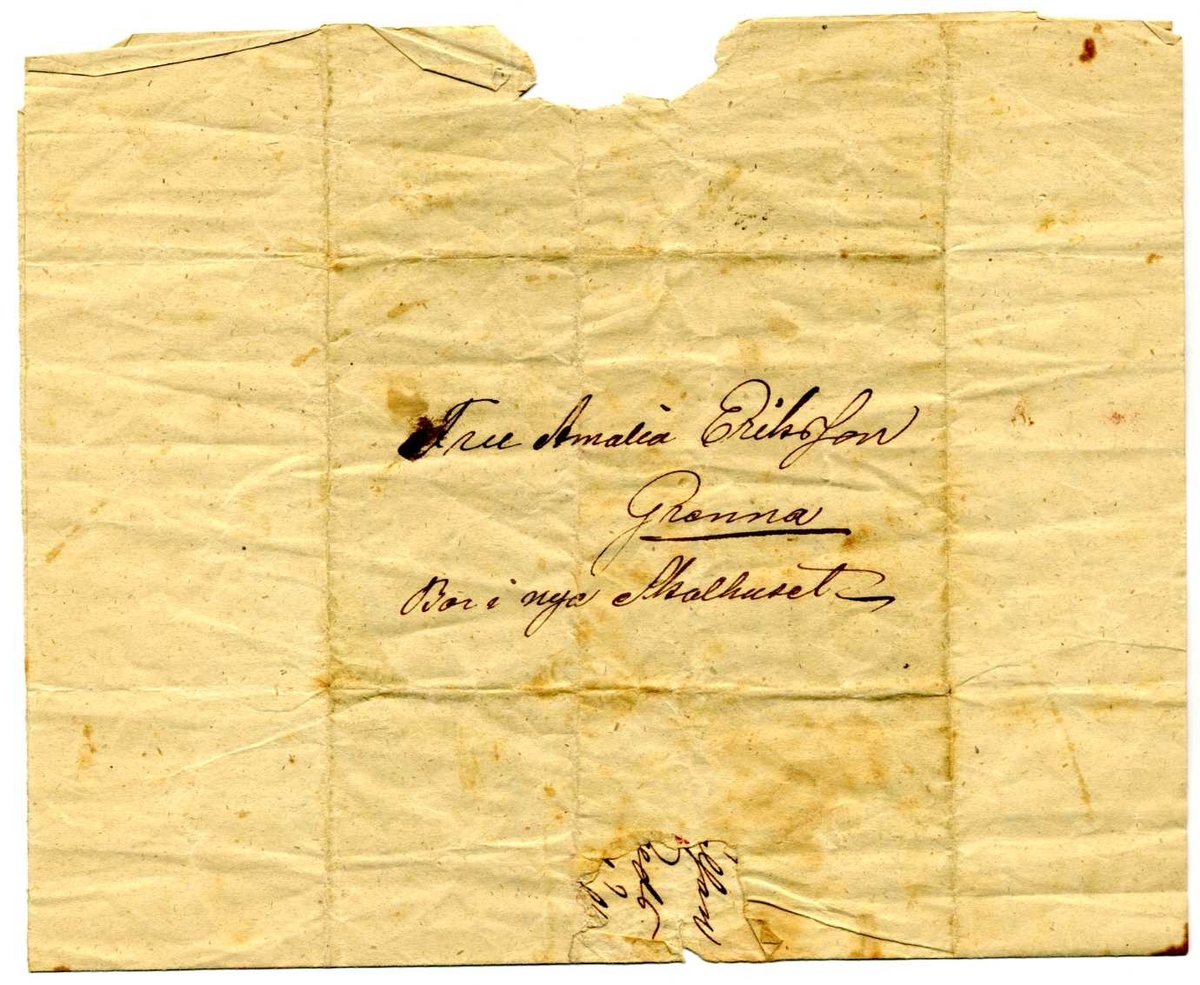 Fru Amalia Eriksson
Grenna
Bor i nya Skolhuset